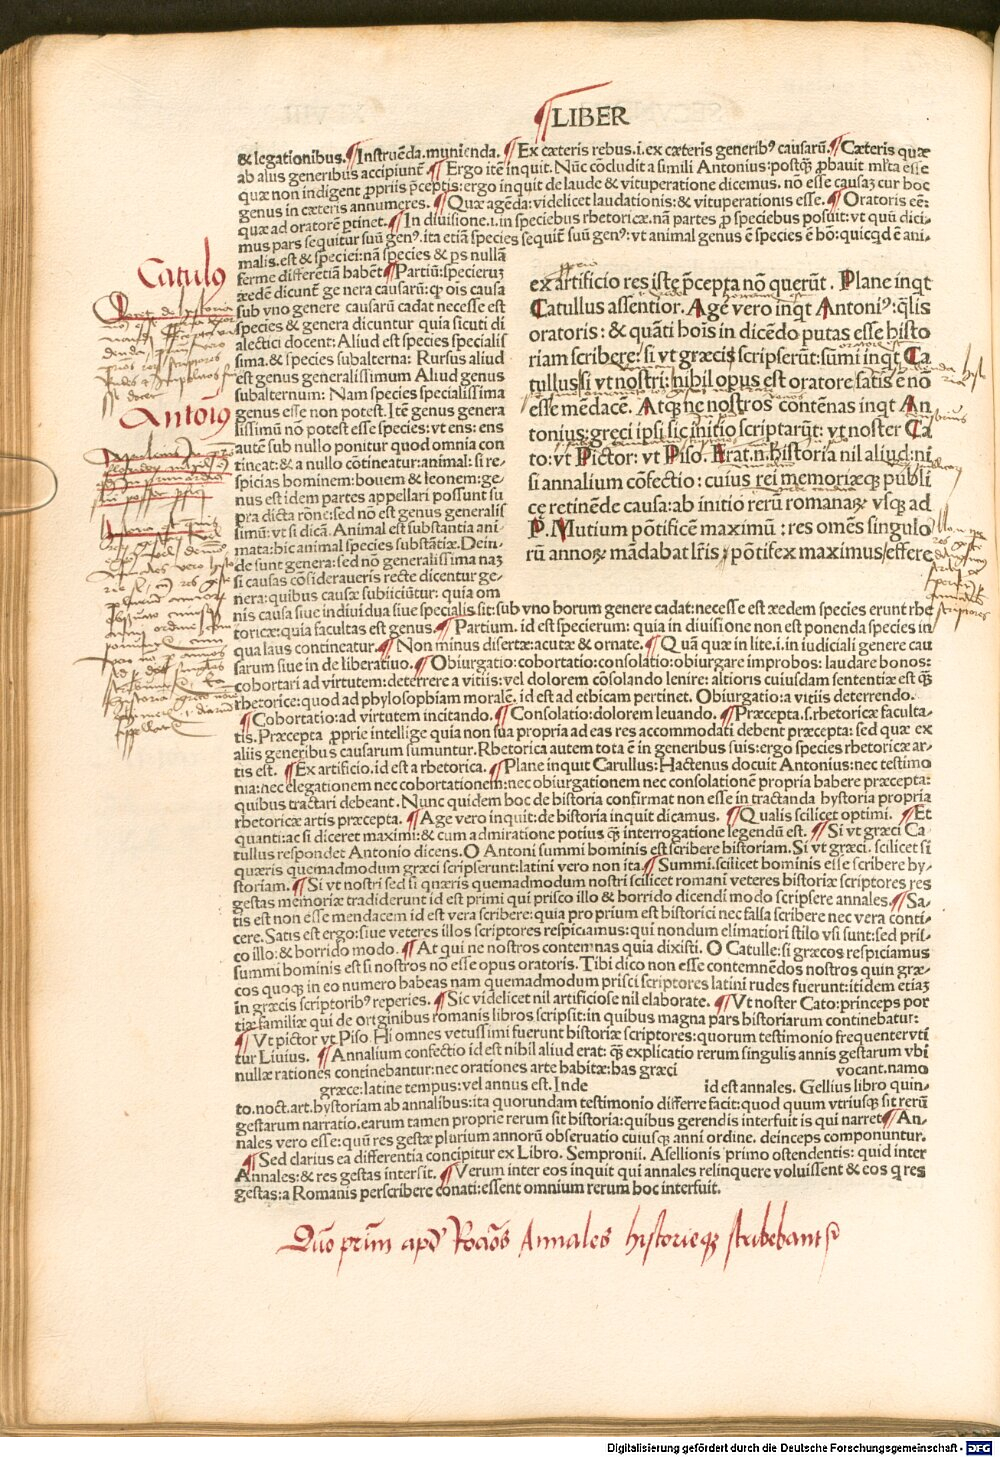 ¶LIBER
& legationibus.¶Instruẽda.munienda. ¶Ex cæteris rebus.i.ex cæteris generibꝰ causarũ.¶Cæteris quæ
ab aliis generibus accipiunt̃ ¶Ergo itẽ inquit. Nũc cõcludit a simili Antonius·postꝗ̃ ꝓbauit mr̃ta esse
quæ non indigent ꝓpriis p̃ceptis:ergo inquit de laude & vituperatione dicemus. nõ esse causaꝫ cur hoc
genus in cæteris annumeres. ¶Quæ agẽda: videlicet laudationis: & vituperationis esse. ¶Oratoris eẽ:
quæ ad oratorẽ ꝑtinet.¶In diuisione.i.in speciebus rhetoricæ.nã partes ꝓ speciebus posuit: vt quũ dici-
mus pars sequitur suũ genꝰ.ita etiã species sequit̃ suũ genꝰ: vt animal genus ẽ species ẽ hõ: quicꝗd ẽ ani-
malis.est & speciei: nã species & ps nullã
ferme differentiã habẽt¶Partiũ:specieruꝫ
æedẽ dicunt̃ ge nera causarũ: ꝙ ois causa
sub vno genere causarũ cadat necesse est
species & genera dicuntur quia sicuti di
alectici docent: Aliud est species specialis
sima. & species subalterna: Rursus aliud
est genus generalissimum Aliud genus
subalternum: Nam species specialissima
genus esse non potest. Itẽ genus genera
lissimũ nõ potest esse species: vt ens: ens
autẽ sub nullo ponitur quod omnia con
tineat: & a nullo cõtineatur: animal: si re-
spicias hominem: bouem & leonem: ge-
nus est idem partes appellari possunt su
pra dicta rõne: sed nõ est genus generalis
simũ: vt si dicã. Animal est substantia ani-
mata: hic animal species substãtiæ. Dein-
de sunt genera: sed nõ generalissima naꝫ
si causas cõsideraueris recte dicentur ge-
nera: quibus causæ subiiciũtur: quia om
nis causa siue indiui dua siue specialis sit: sub vno horum genere cadat: necesse est æedem species erunt rhe
toricæ: quia facultas est genus.¶Partium. id est specierum: quia in diuisione non est ponenda species in
qua laus contineatur. ¶Non minus disertæ: acutæ & ornate. ¶Quã quæ in lite.i.in iudiciali genere cau
sarum siue in de liberatiuo. ¶Obiurgatio: cohortatio: consolatio: obiurgare improbos: laudare bonos:
cohortari ad virtutem: deterrere a vitiis: vel dolorem cõsolando lenire: altioris cuiusdam sententiæ est ꝗ̃
rhetorice: quod ad phylosophiam moralẽ. id est ad ethicam pertinet. Obiurgatio: a vitiis deterrendo.
¶Cohortatio: ad virtutem incitando. ¶Consolatio: dolorem leuando. ¶Præcepta.s.rhetoricæ faculta-
tis. Præcepta ꝓprie intellige quia non sua propria ad eas res accommodati debent præcepta: sed quæ ex
aliis generibus causarum sumuntur. Rhetorica autem tota ẽ in generibus suis: ergo species rhetoricæ ar-
tis est. ¶Ex artificio. id est a rhetorica. ¶Plane inquit Carullus: Hactenus docuit Antonius: nec testimo
nia: nec elegationem nec cohortationem: nec obiurgationem nec consolationẽ propria habere præcepta:
quibus tractari debeant. Nunc quidem hoc de historia confirmat non esse in tractanda hystoria propria
rhetoricæ artis præcepta. ¶Age vero inquit: de historia inquit dicamus. ¶Qualis scilicet optimi. ¶Et
quanti: ac si diceret maximi: & cum admiratione potius ꝗ̃ interrogatione legendũ est. ¶Si vt græci Ca
tullus respondet Antonio dicens. O Antoni summi hominis est scribere historiam. Si vt græci. scilicet si
quæris quemadmodum græci scripserunt: latini vero non ita.¶Summi. scilicet hominis esse scribere hy-
storiam. ¶Si vt nostri sed si quæris quemadmodum nostri scilicet romani veteres historiæ scriptores res
gestas memoriæ tradiderunt id est primi qui prisco illo & horrido dicendi modo scripsere annales.¶Sa-
tis est non esse mendacem id est vera scribere: quia pro prium est historici nec falsa scribere nec vera conti-
cere. Satis est ergo: siue veteres illos scriptores respiciamus: qui nondum elimatiori stilo vsi sunt: sed pris-
co illo: & horrido modo. ¶At qui ne nostros contemnas quia dixisti. O Catulle: si græcos respiciamus
summi hominis est si nostros nõ esse opus oratoris. Tibi dico non esse contemnẽdos nostros quin græ-
cos quoꝗ in eo numero habeas nam quemadmodum prisci scriptores latini rudes fuerunt: itidem etiaꝫ
in græcis scriptoribꝰ reperies. ¶Sic videlicet nil artificiose nil elaborate. ¶Vt noster Cato: princeps por
tiæ familiæ qui de originibus romanis libros scripsit: in quibus magna pars historiarum continebatur:
¶Vt pictor vt Piso. Hi omnes vetussimi fuerunt historiæ scriptores: quorum testimonio frequenter vti
tur Liuius. ¶Annalium confectio id est nihil aliud erat: ꝗ̃ explicatio rerum singulis annis gestarum vbi
nullæ rationes continebantur: nec orationes arte habitæ: has græci vocant. namo
græce: latine tempus: vel annus est. Inde id est annales. Gellius libro quin-
to. noct. art. hystoriam ab annalibus: ita quorundam testimonio differre facit: quod quum vtriusꝗ sit rerũ
gestarum narratio. earum tamen proprie rerum sit historia: quibus gerendis interfuit is qui narret¶An-
nales vero esse: quũ res gestæ plurium annorũ obseruatio cuiusꝗ anni ordine. deinceps componuntur.
¶Sed clarius ea differentia concipitur ex Libro. Sempronii. Asellionis primo ostendentis: quid inter
Annales: & res gestas intersit. ¶Verum inter eos inquit qui annales relinquere voluissent & eos ꝗ res
gestas: a Romanis perscribere conati: essent omnium rerum hoc interfuit.
ex artificio res istę p̃cepta nõ querũt. Plane inqt
Catullus assentior. Age vero inqt Antoniꝰ: q̃lis
oratoris: & quãti hoĩs in dicẽdo putas esse histo
riam scribere: si vt græcis scripserũt: sũmi inqt Ca
tullus/si vt nostri: nihil opus est oratore/satis ẽ nõ
esse mẽdacẽ. Atꝗ ne nostros contẽnas inqt An
tonius: greci ipsi sic initio scriptarũt: vt noster Ca
to: vt Pictor: vt Piso. Erat.n.historia nil aliud: ni
si annalium cõfectio: cuius rei memoriæꝗ publi
cę retinẽde causa: ab initio rerũ romanaꝝ vsꝗ ad
P. Mutium põtificẽ maximũ: res omẽs singulo
rũ annoꝝ mãdabat lr̃is/põtifex maximus/effere
Catulus
Antonius
Quo primũ apd' Romãos Annales historieꝗ
Digitalisierung gefördert durch die Deutsche Forschungsgemeinschaft - DFG